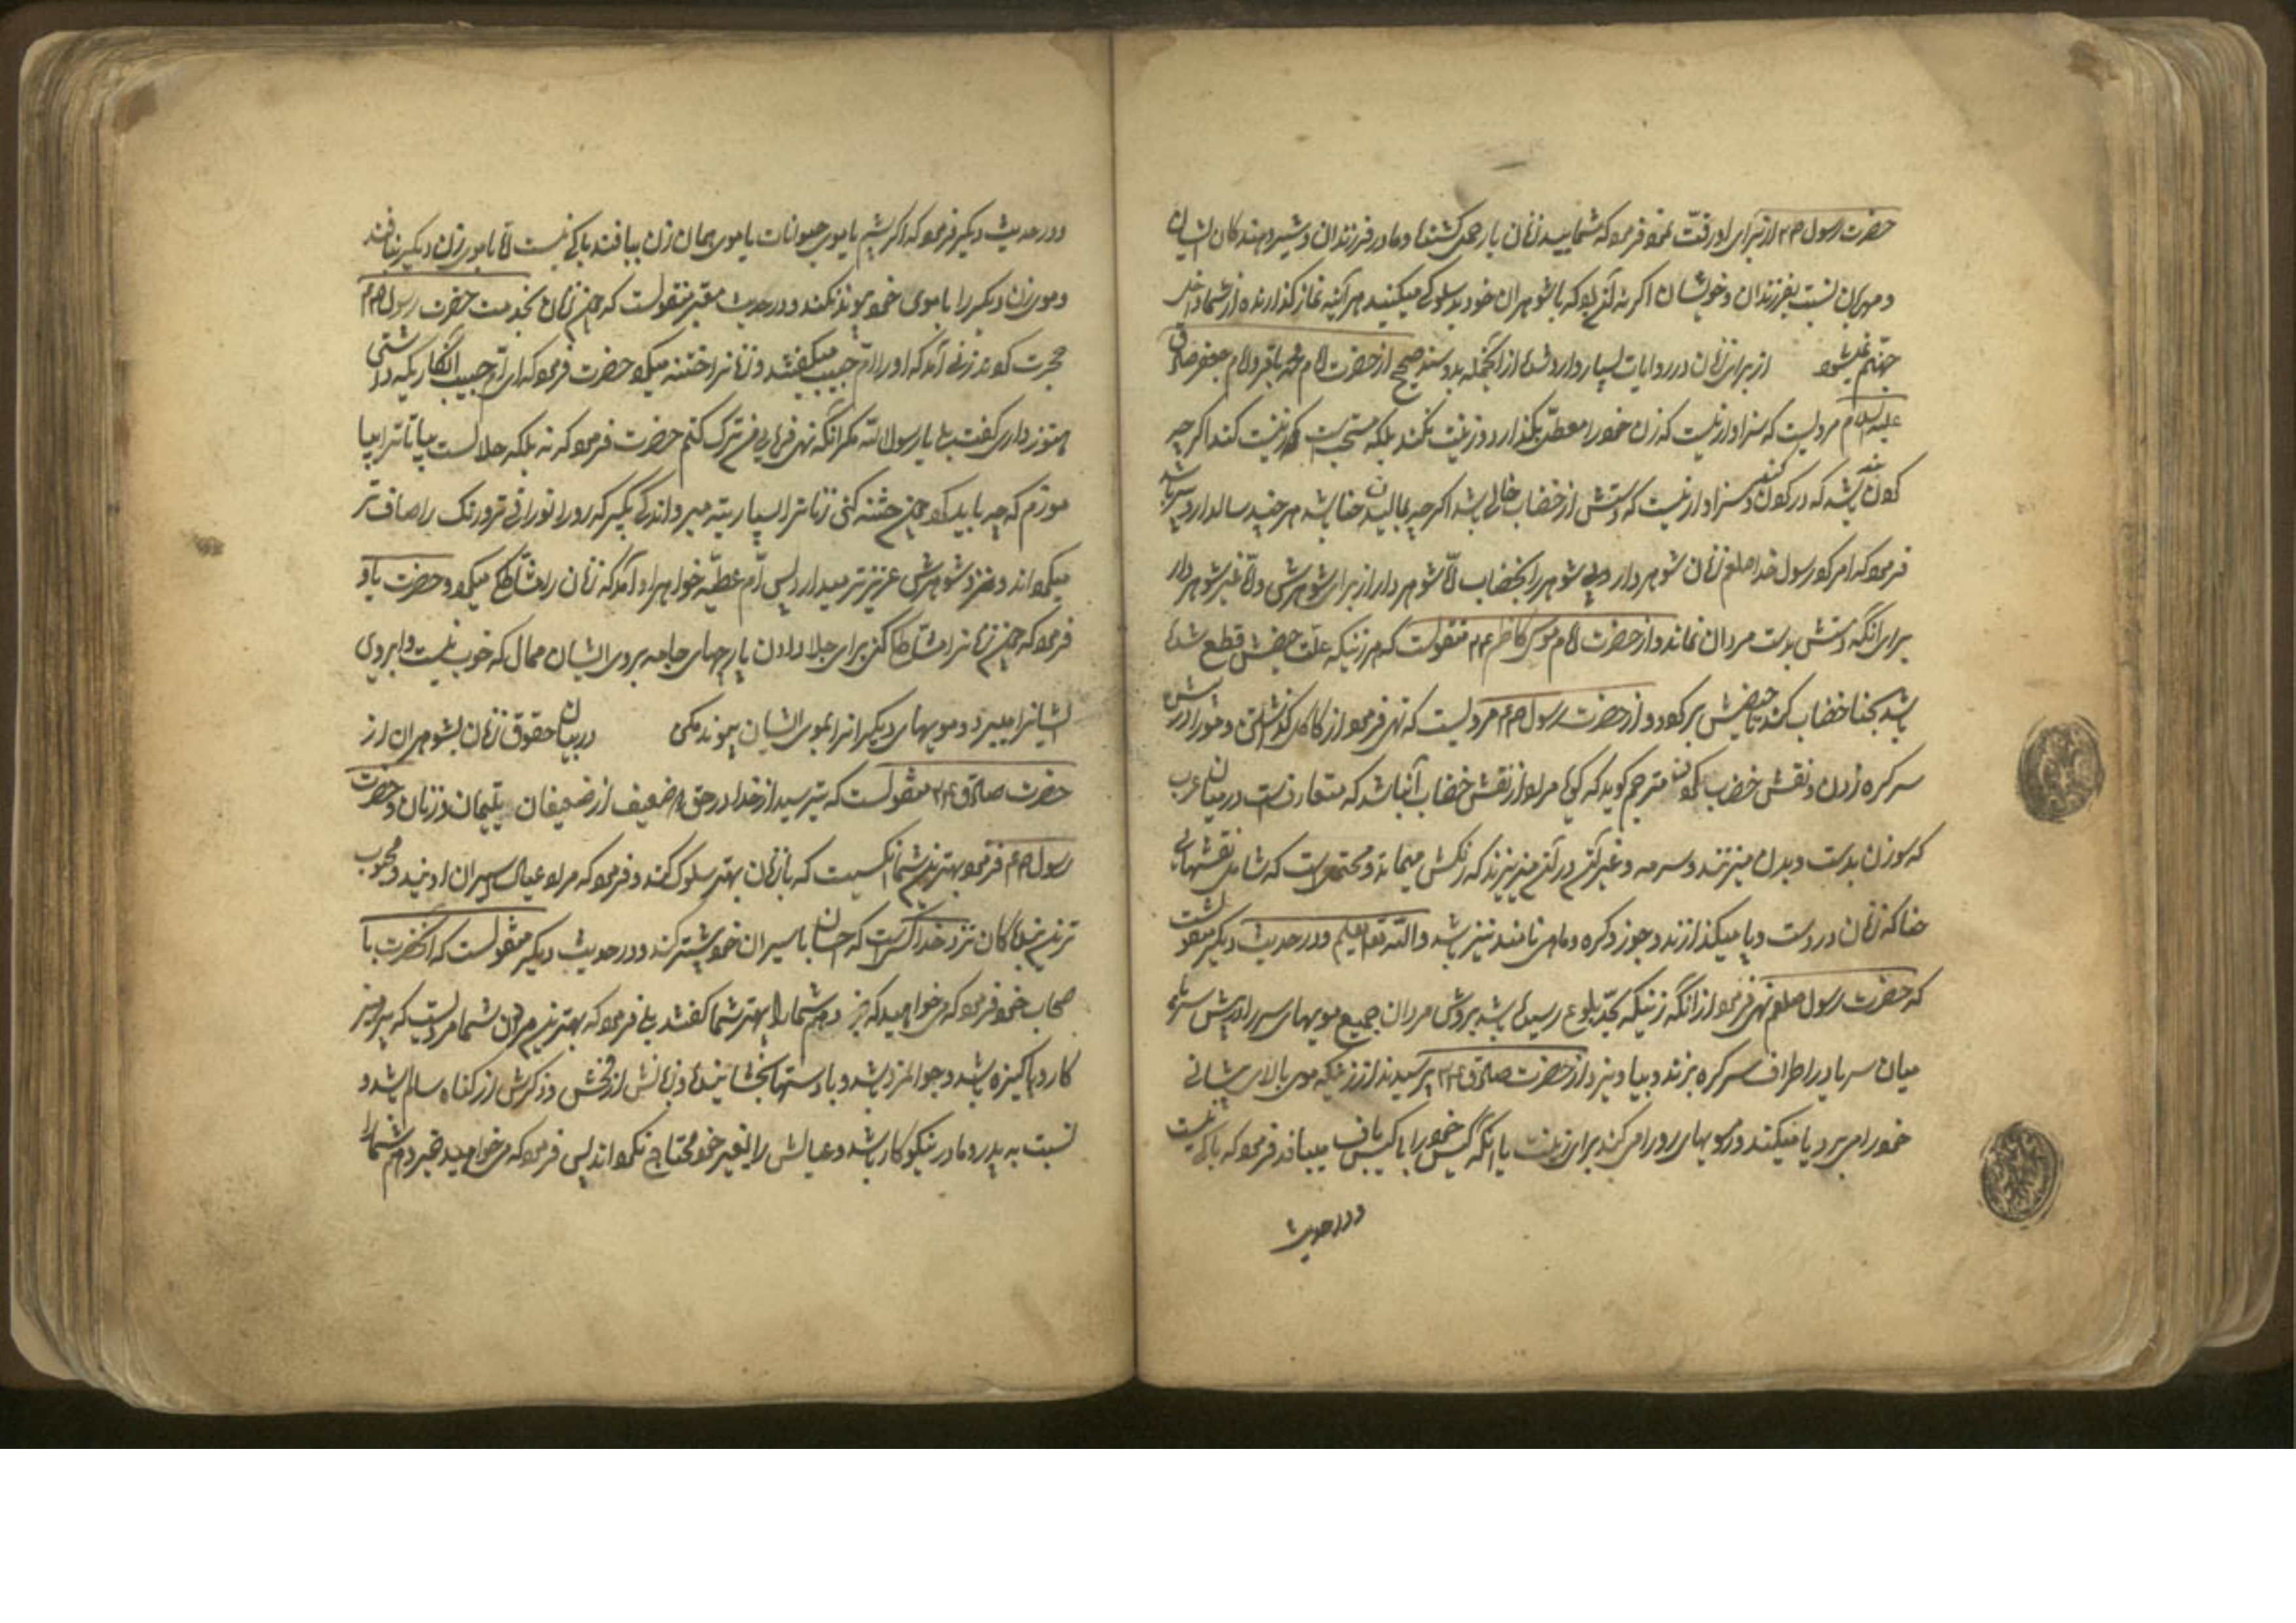 حضرت رسول ص۴ از برای او رقّت نمود فرمود که شمایید زنان بار حمل کشنده و مادر فرزندان و شیر دهندگان ایشان
و مهربان نسبت بفرزندان و خویشان اگر نه آن بود که با شوهران خود بد سلوکی میکنید هر آینه نماز گذارنده از شما داخل
جهنم نمیشود از برای زنان در روایات بسیار وارد شده از آنجمله بدو سند صحیح از حضرت امام محمد باقر و امام جعفر صادق
علیه السلام مرویست که سزاوار نیست که زن خود را معطّل بگذارد و زینت نکند بلکه مستحبست که زینت کند اگر چه
کردن بندی باشد که در گردن کند و سزاوار نیست که دستش از خضاب خالی باشد اگر چه بمالیدن حنا باشد هر چند سالدار و پیر باشد
فرمود که امر کرد رسول خدا صلعم زنان شوهر دار و بی شوهر را بخضاب امّا شوهر دار از برای شوهرش و امّا غیر شوهر دار
برای آنکه دستش بدست مردان نماند و از حضرت امام موسی کاظم ع۴ منقولست که هر زنیکه علت حیضش قطع شده
باشد بحنا خضاب کند تا حیضش برگردد و از حضرت رسول ص۴ مرویست که نهی فرمود از کاکل گذاشتن و مو را در پیش
سر گره زدن و نقش خضاب کردن مترجم گوید که گویا مراد از نقش خضاب آنها باشد که متعارفست در میان عرب
که سوزن بدست و بدن میزنند و سرمه و غیر آن در آن میریزند که رنگش میماند و محتملست که شامل نقشهای
حنا که زنان در دست و پا میگذارند و جوز و گره و ماهی نامند نیز باشد و الله تعالی یعلم و در حدیث دیگر منقولست
که حضرت رسول صلعم نهی فرمود از آنکه زنیکه بحدّ بلوغ رسیده باشد بروش مردان جمیع مویهای سر را در پیش سر یا
میان سر یا در اطراف سر گره بزند و بیاویزد از حضرت صادق ع۴ پرسیدند از زنیکه موی بالای پیشانی
خود را میبرد یا میکند و مویهای رو را میکند برای زینت یا آنکه گیس خود را با گیس باف میبافد فرمود که باکی نیست
و در حدیث
و در حدیث دیگر فرمود که اگر پشم یا موی حیوانات یا موی همان زن ببافند باکی نیست امّا با موی زن دیگر نبافند
و موی زن دیگر را با موی خود پیوند نکند و در حدیث معتبر منقولست که چون زنان بخدمت حضرت رسول ص۴
هجرت کردند زنی آمد که او را امّ حبیب میگفتند و زنانرا ختنه میکرد حضرت فرمود که ای امّ حبیب آنکاریکه داشتی
هنوز داری گفت بلی یا رسول الله مگر آنکه نهی فرمایی من ترک کنم حضرت فرمود که نه بلکه حلالست بیا تا ترا بیا
موزم که چه باید کرد چون ختنه کنی زنانرا بسیار بته مبر و اندکی بگیر که رو را نورانی تر و رنگ را صاف تر
میگرداند و نزد شوهرش عزیزتر میدارد پس امّ عطیّه خواهر او آمد که زنان را مشّاطگی میکرد حضرت باو
فرمود که چون زنانرا مشّاطگی کنی برای جلا دادن پارچهای جامه بروی ایشان ممال که خوب نیست و ابروی
ایشانرا مبر و مویهای دیگرانرا بموی ایشان پیوند مکن در بیان حقوق زنان بشوهران از
حضرت صادق ع۴ منقولست که بترسید از خدا در حق دو ضعیف از ضعیفان یتیمان و زنان و حضرت
رسول ص۴ فرمود بهترین شما آنکسیست که با زنان بهتر سلوک کند و فرمود که مراد عیال اسیران اویند و محبوب
ترین بندگان نزد خدا کسیست که احسان با اسیران خود بیشتر کند و در حدیث دیگر منقولست که آنحضرت با
صحاب خود فرمود که میخواهید که خبر دهم شما را بهتر شما گفتند بلی فرمود که بهترین مردان شما مردیست که پرهیز
کار و پاکیزه باشد و جوانمرد باشد و با دستها بخشاینده و زبانش از فحش و ذکرش از گناه سالم باشد و
نسبت به پدر و مادر نیکوکار باشد و عیالش را بغیر خود محتاج نگرداند پس فرمود که میخواهید خبر دهم شما را